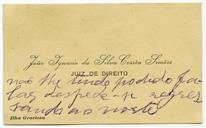 João Ignacio da Silva Corrêa Simões
JUIZ DE DIREITO
não lhe tendo podido fa-
lar despede-se regres-
sando ao norte
Ilha Graciosa